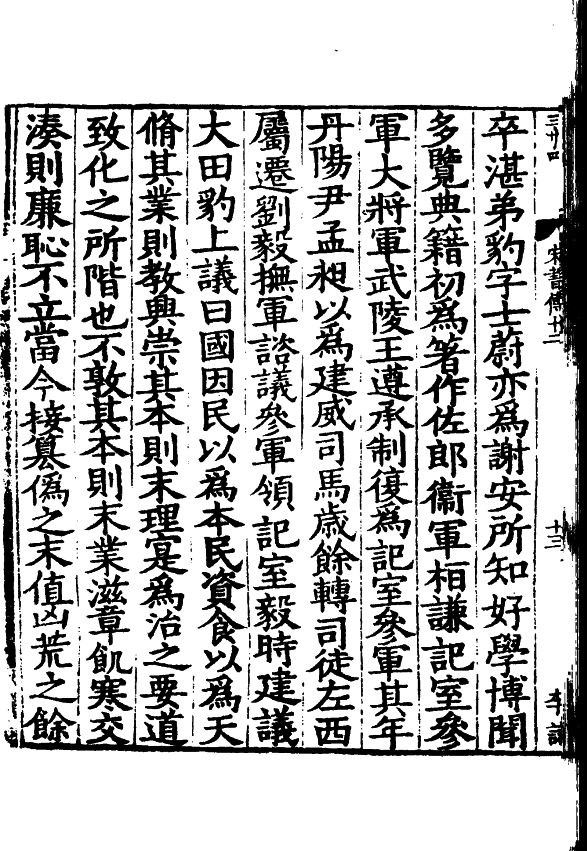 三廿四
宋書傳廿二
十三
卒湛弟豹字士蔚亦爲謝安所知好學博聞
多覽典籍初爲著作佐郎衞軍桓謙記室參
軍大將軍武陵王遵承制復爲記室參軍其年
丹陽尹孟昶以爲建威司馬歲餘轉司徒左西
屬遷劉毅撫軍諮議參軍領記室毅時建議
大田豹上議曰國因民以爲本民資食以爲天
脩其業則教興崇其本則末理寔爲治之要道
致化之所階也不敦其本則末業滋章飢寒交
湊則廉恥不立當今接篡僞之末值凶荒之餘